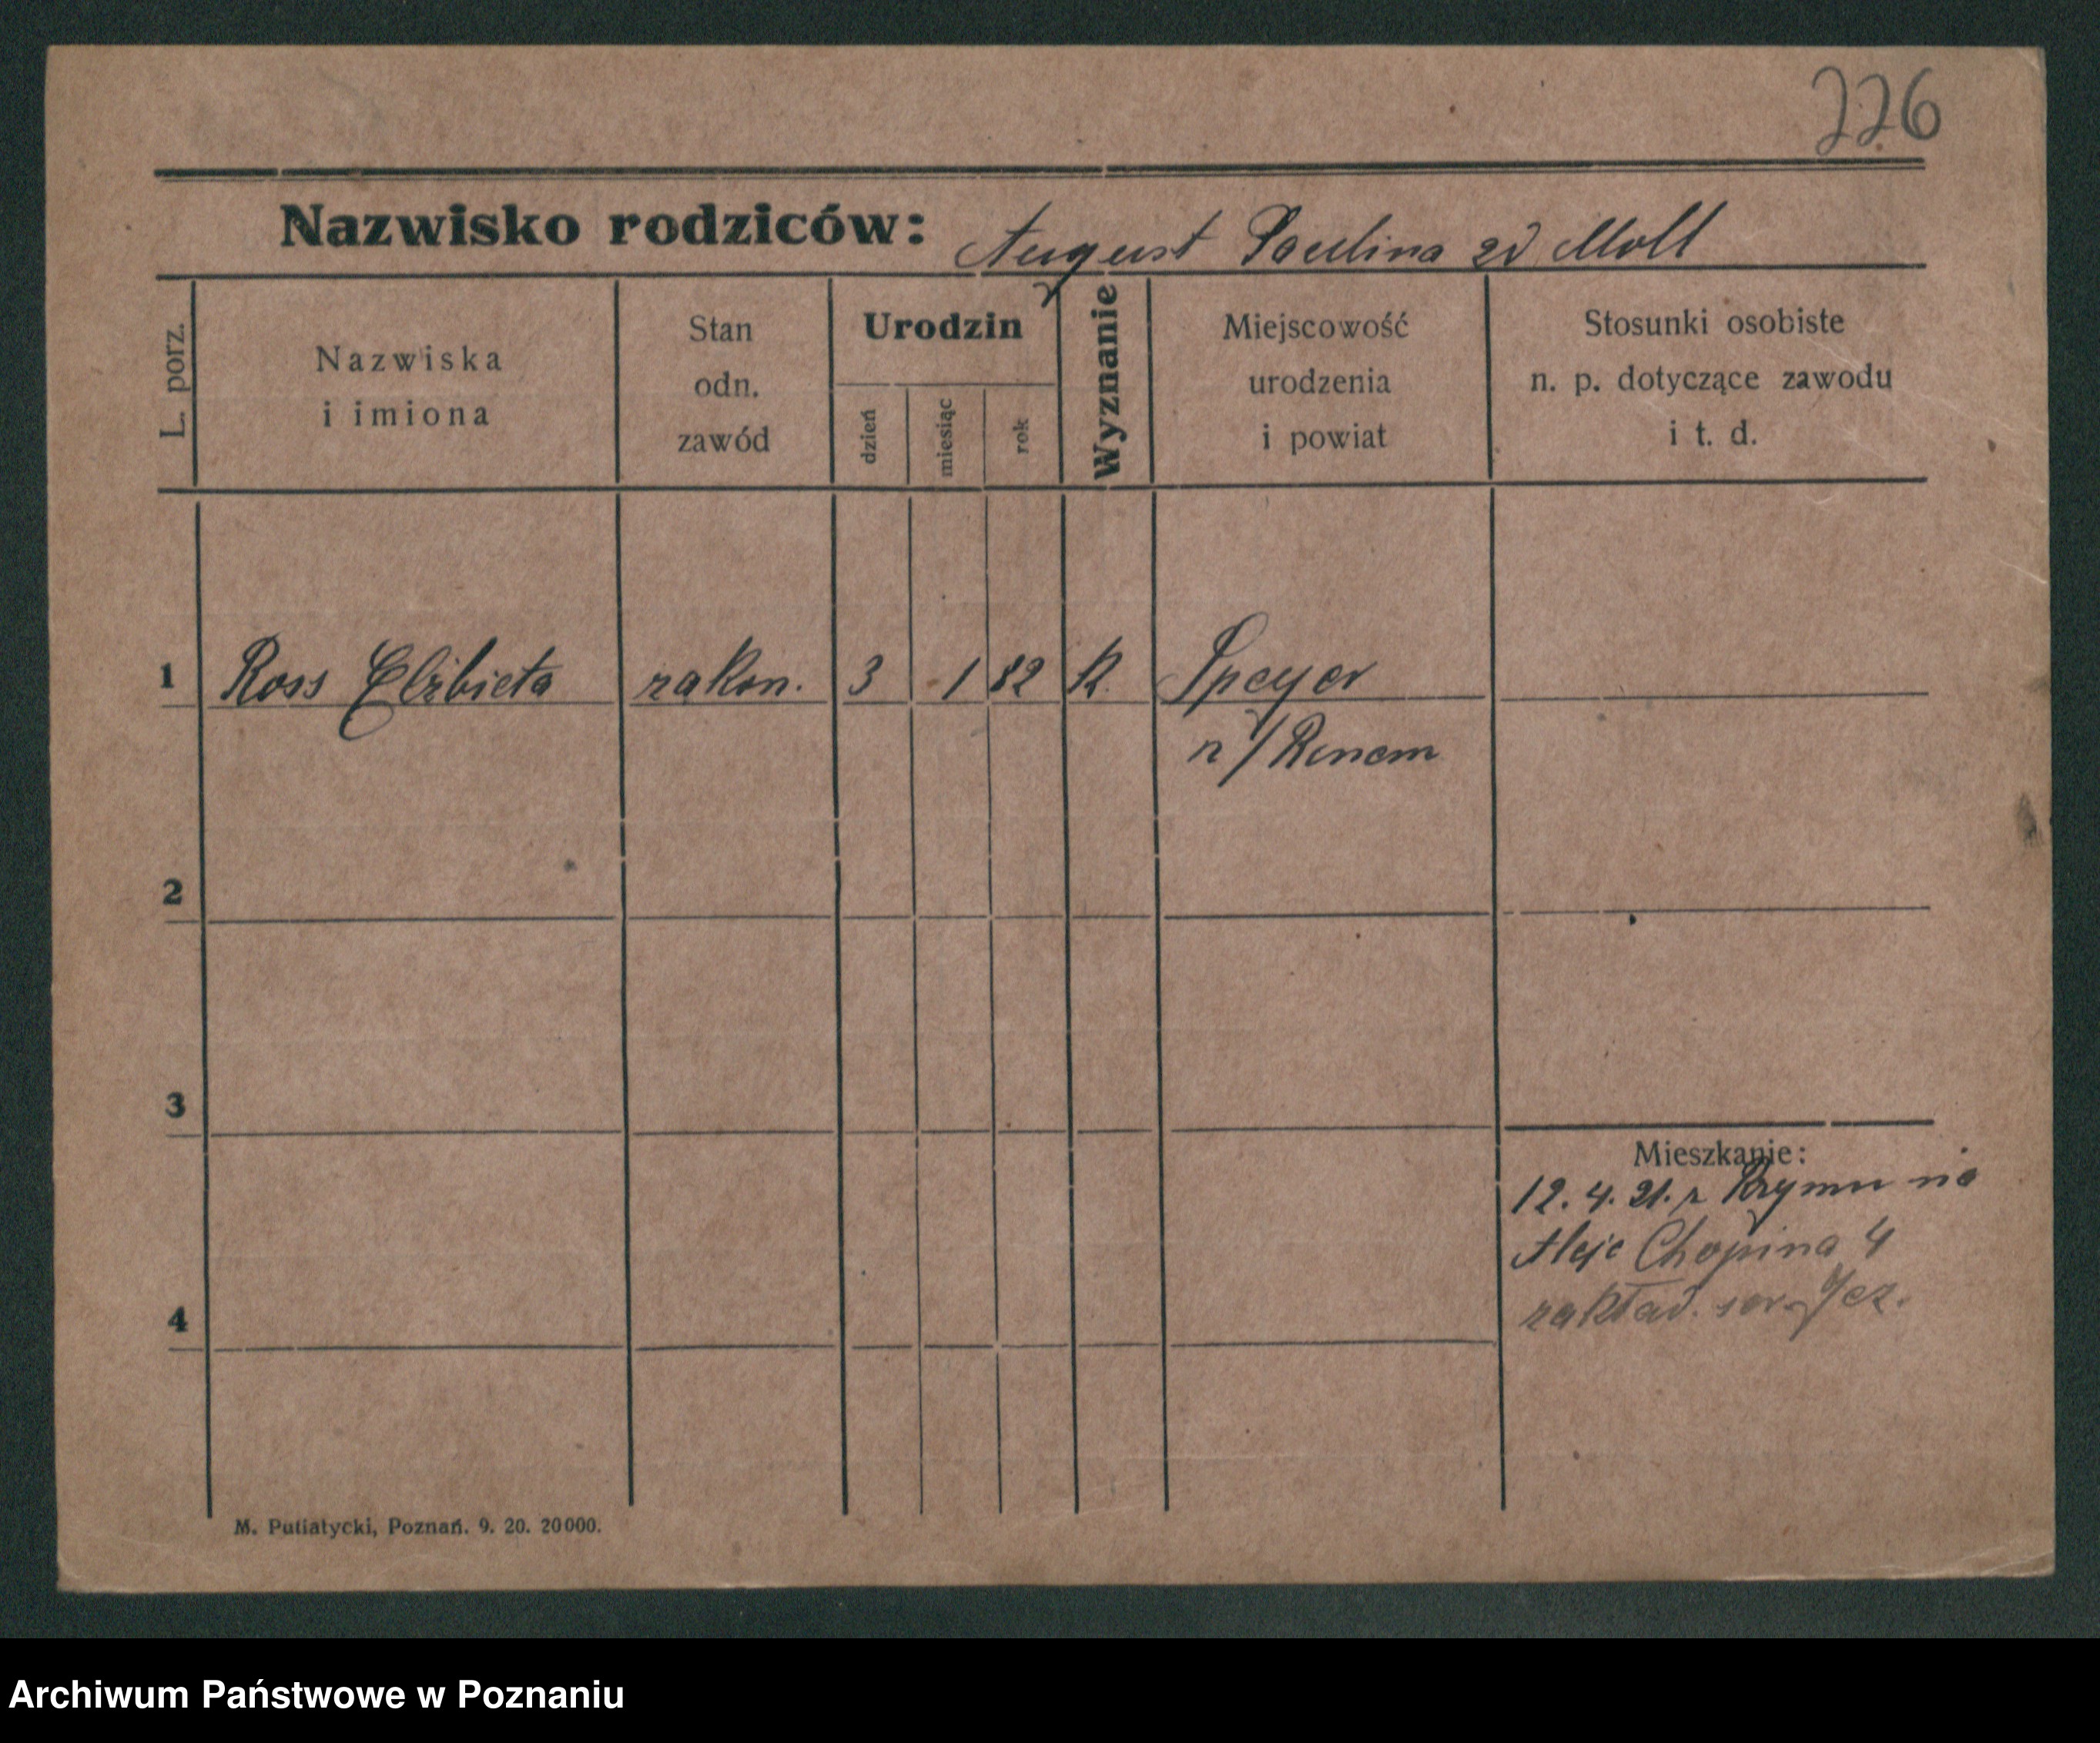 226
Nazwisko rodziców: August Paulina zd Moll
L. porz.
Nazwiska
i imiona
Stan
odn.
zawód
Urodzin
dzień
miesiąc
rok
Wyznanie
Miejscowość
urodzenia
i powiat
Stosunki osobiste
n. p. dotyczące zawodu
i t. d.
1 Ross Elżbieta zakon. 3 1 82 R. Speyer
n/Renem
2
3
Mieszkanie:
12. 4. 21. z Rzymu na
Aleje Chopina 4
zakład. ser. Jez.
4
M. Putiatycki, Poznań. 9. 20. 20000.
Archiwum Państwowe w Poznaniu